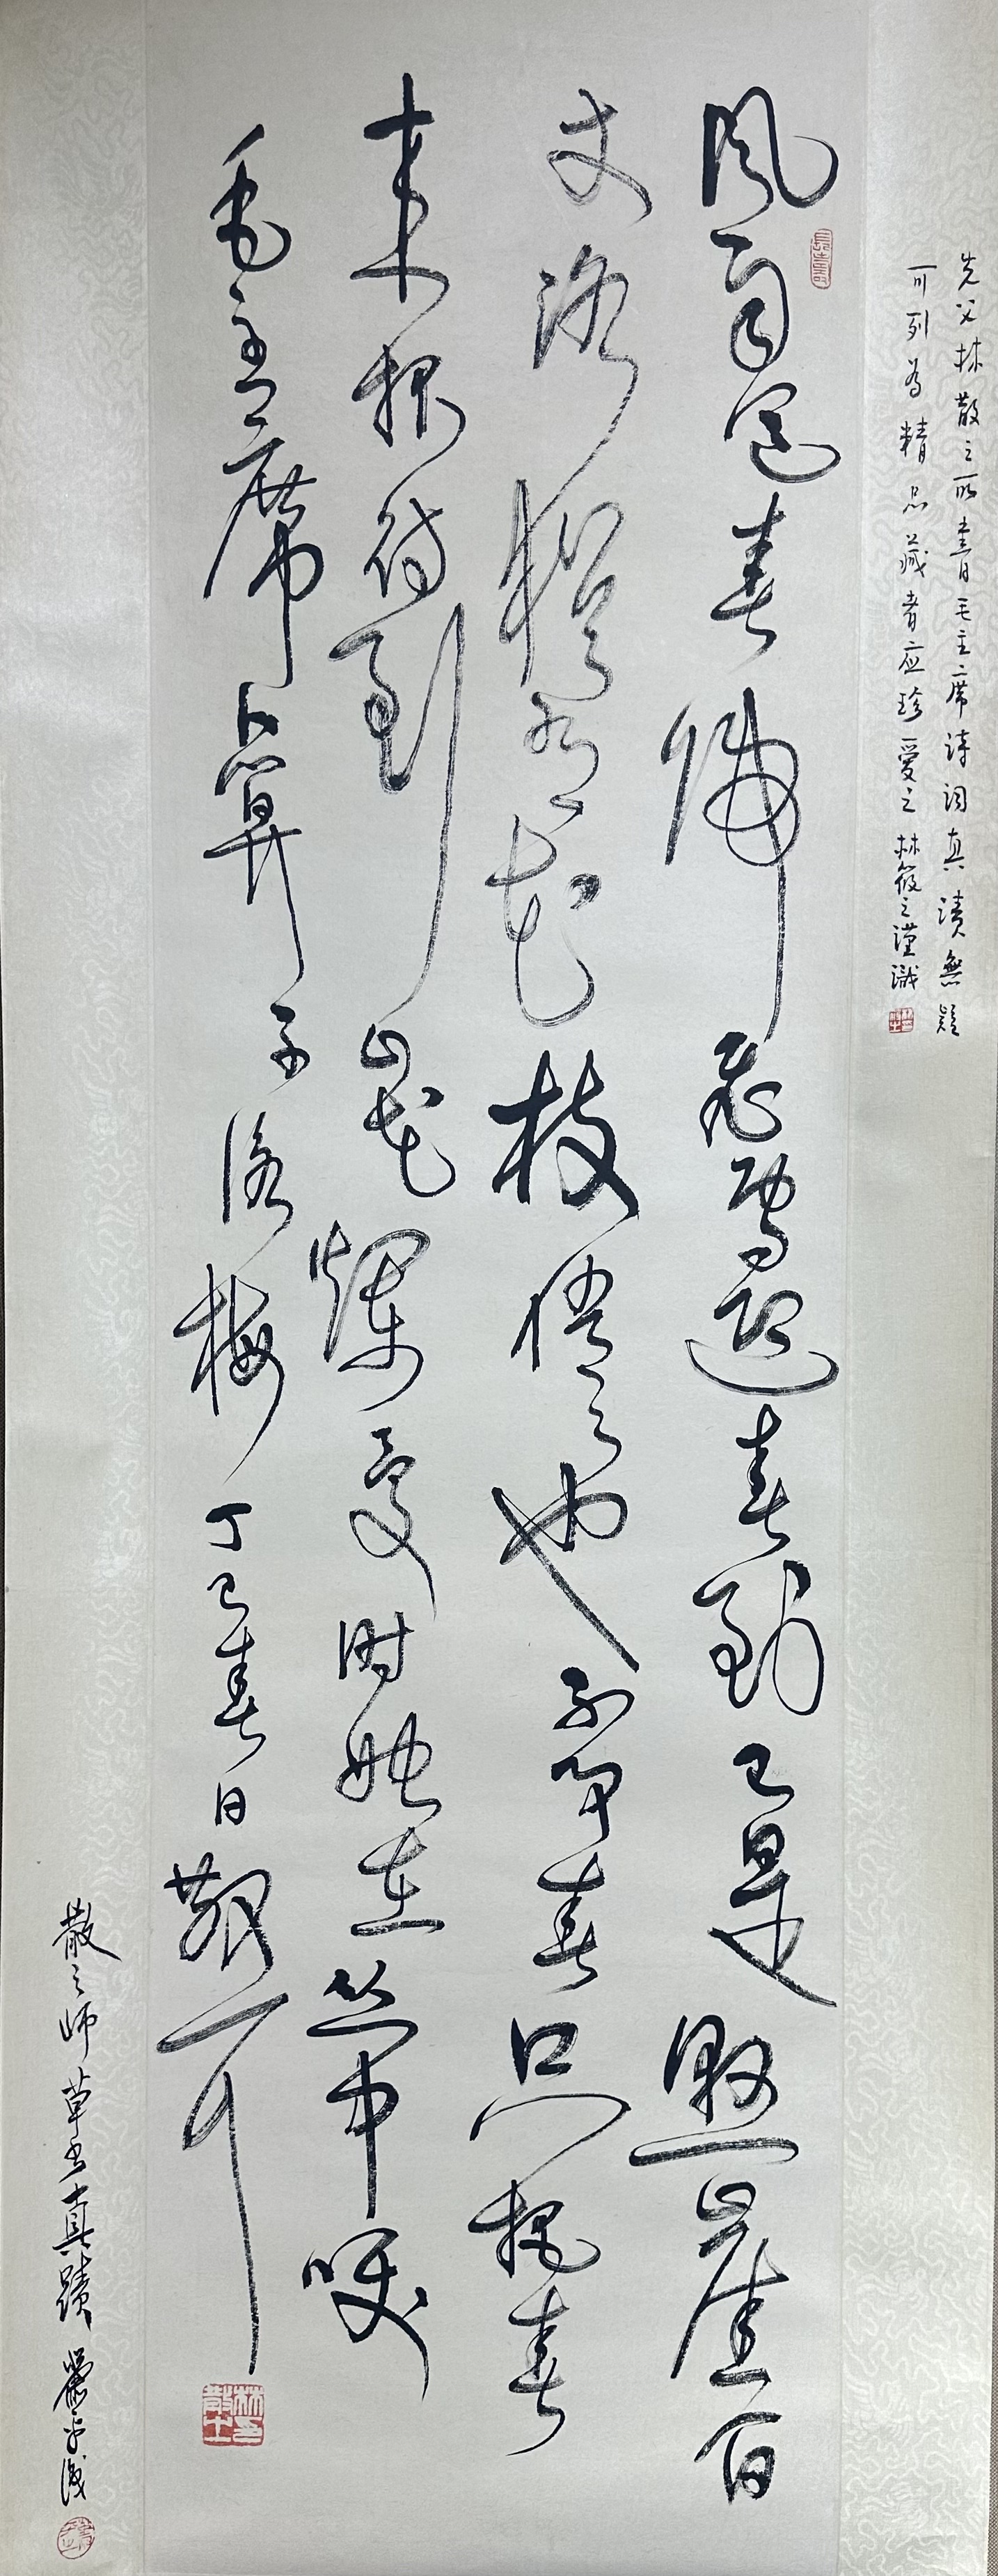 先父林散之所書毛主席詩詞真蹟無疑
可列為精品藏者应珍愛之林筱之謹識
風雨送春歸飛雪迎春到已是懸崖百
丈冰猶有花枝俏俏也不争春只把春
来报待到山花爛曼时她在丛中笑
毛主席卜算子詠梅丁巳春日散耳
散之師草书真蹟蕭平識
長壽
林散之印